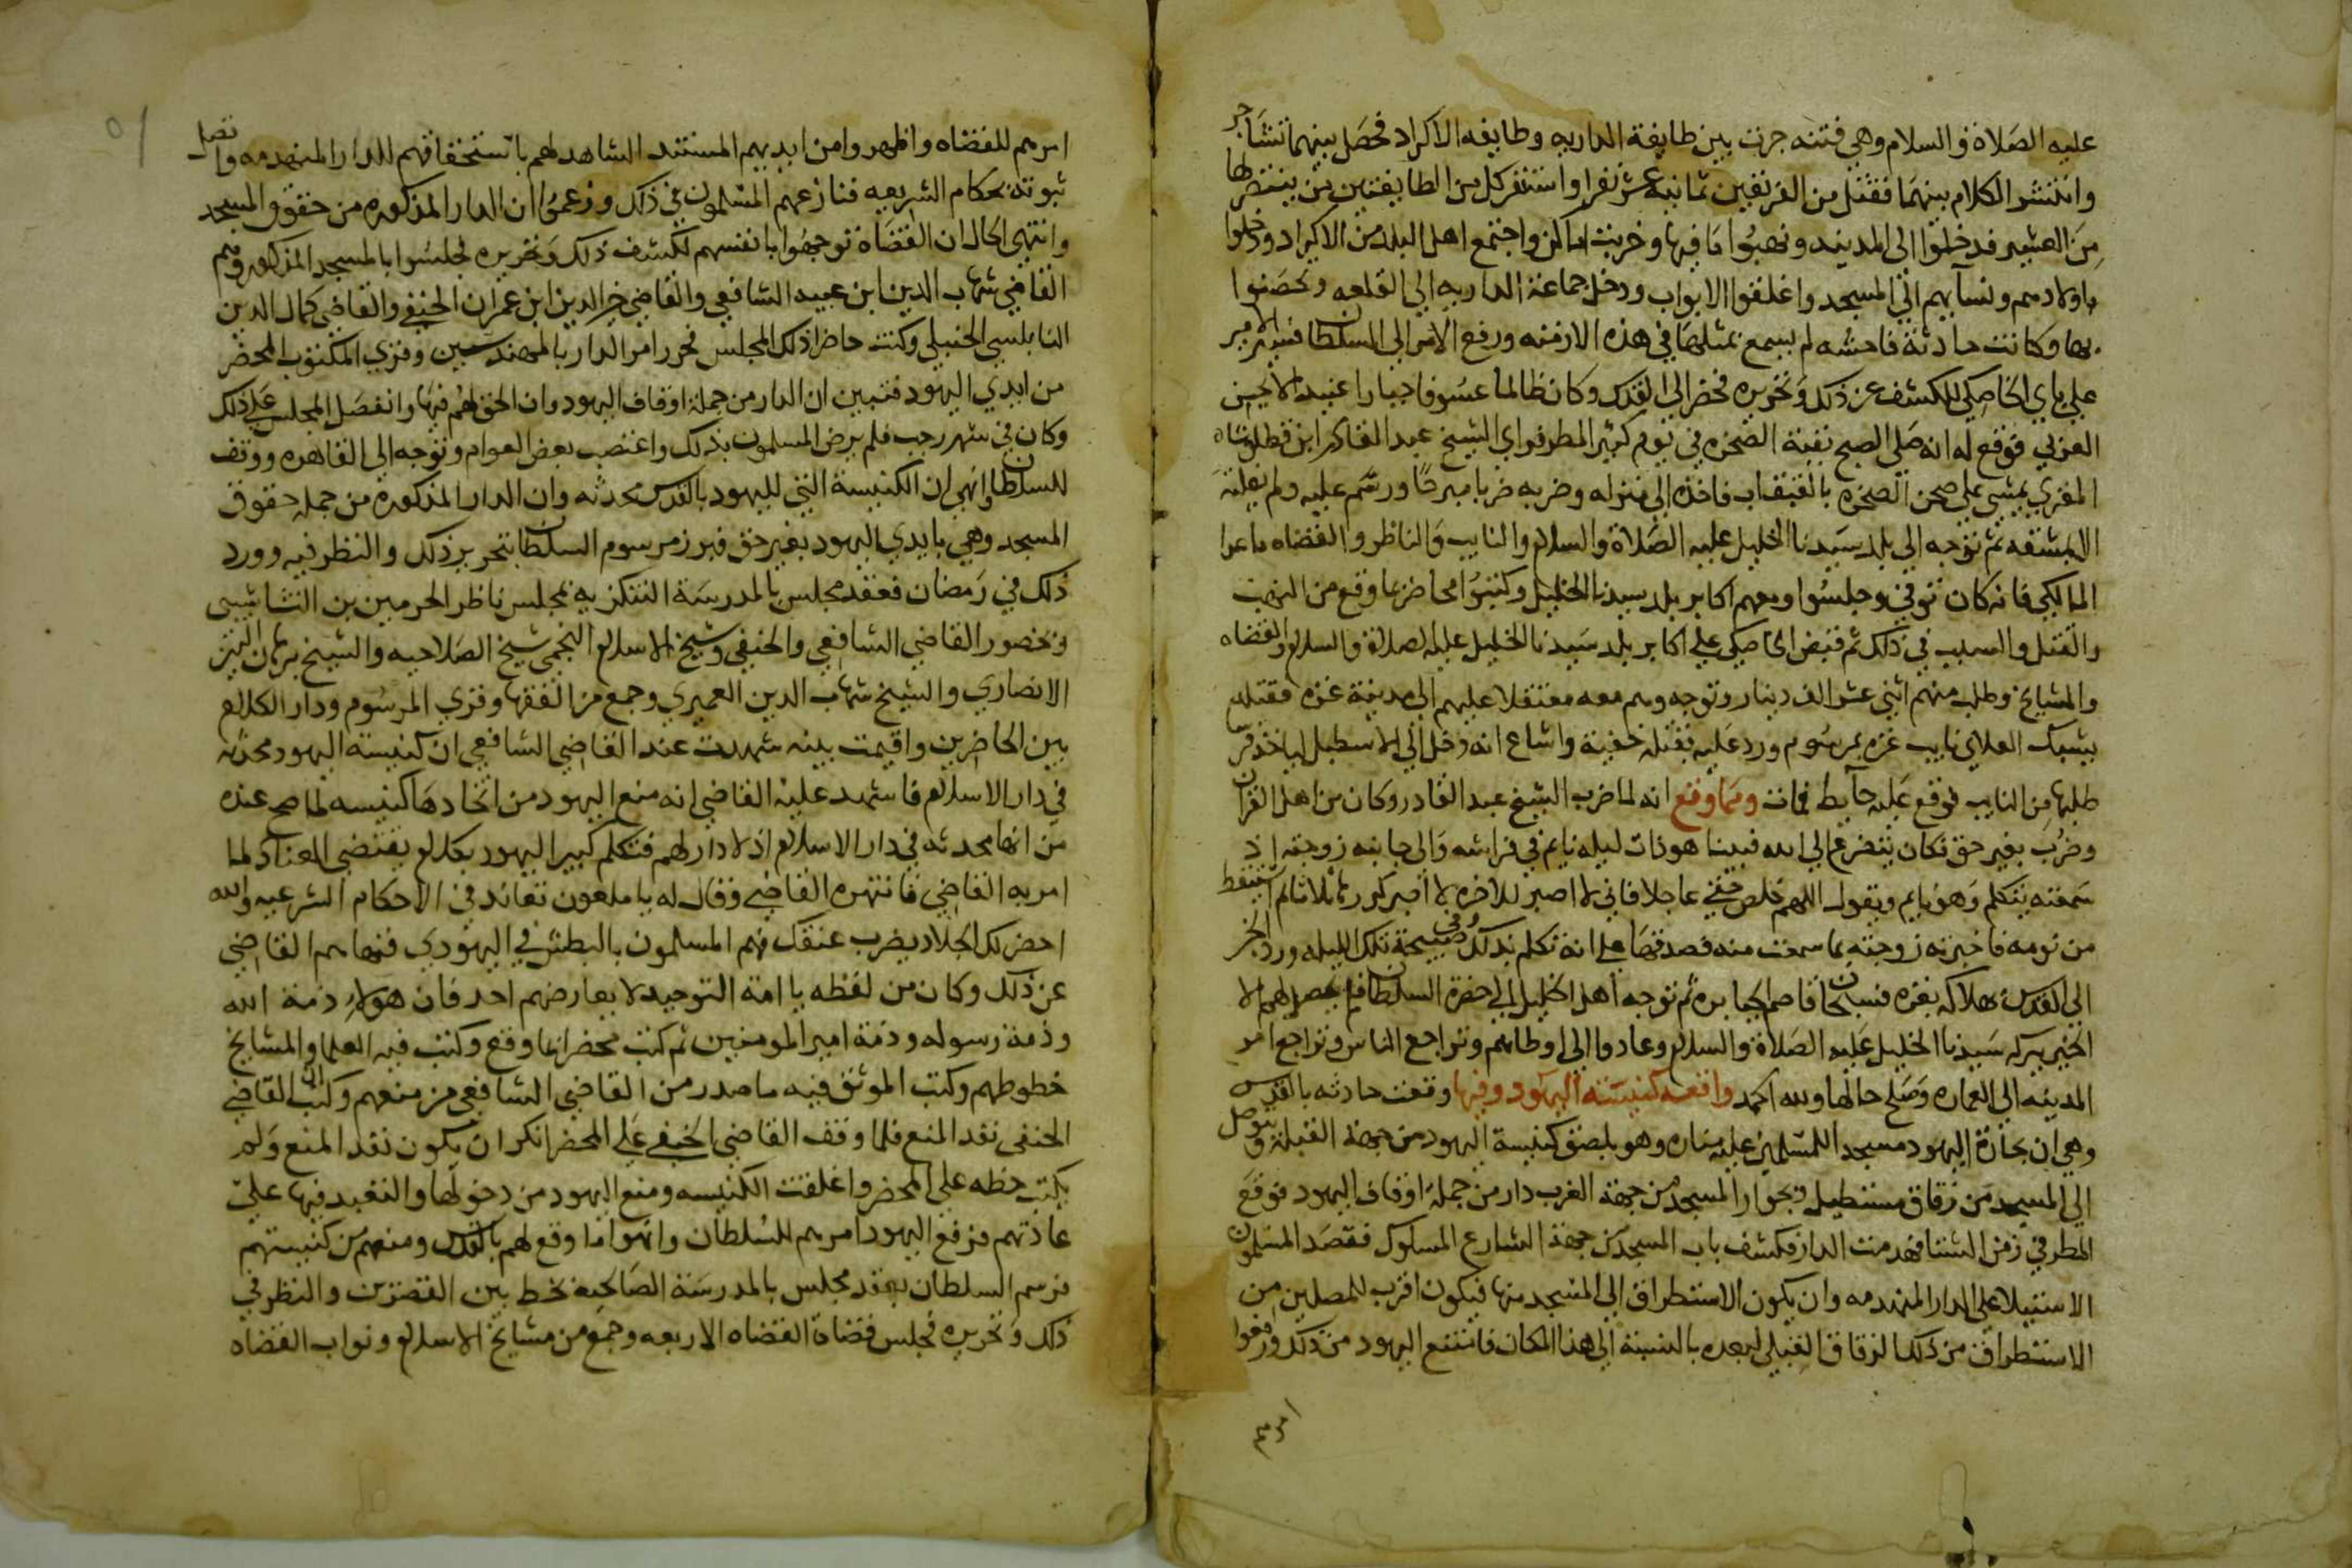 عليه الصلاة والسلام وهي فتنه جرت بين طايفة الداريه وطايفه الاكراد فحصل بينهما تشاجر
وانتشر الكلام بينهما فقتل من الفريقين ثمانيه عشر نفرا واستنفر كل من الطايفتين من ينتصر لها
من العشير فدخلوا الى المدينه ونهبوا ما فيها وخربت اماكن واجتمع اهل البلد من الاكراد ودخلوا
باولادهم ونسآيهم الى المسجد واغلقوا الابواب ودخل جماعة الداريه الي القلعه وتحصنوا
بها وكانت حادثة فاحشه لم يسمع بمثلها في هذه الازمنه ورفع الامر الى السلطان فسير الامير
علي باي الخاصكي للكشف عن ذلك وتحريره فحضر الى القدس وكان ظالما عسوفا جبارا عنيدا لا يحسن
العربي فوقع له انه صلى الصبح بقبة الصخره في يوم كثير المطر فراي الشيخ عبد القادر ابن قطلوشاه
المقري يمشي علي صحن الصخره بالقبقاب فاخذه الى منزله وضربه ضربا مبرحا ورسم عليه ولم يفلته
الا بمشقه ثم توجه الى بلد سيدنا الخليل عليه الصلاة والسلام والنايب والناظر والقضاه ما عدا
المالكي فانه كان توفي وجلسوا ومعهم اكابر بلد سيدنا الخليل وكتبوا محاضر بما وقع من النهب
والقتل والسلب في ذلك ثم قبض الخاصكي علي اكابر بلد سيدنا الخليل عليه الصلاة والسلام والقضاه
والمشايخ وطلب منهم اثني عشر الف دينار وتوجه وهم معه معتقلا عليهم الى مدينة غزه فقتله
يشبك العلاي نايب غزه بمرسوم ورد عليه بقتله خفية واشاع انه دخل الى الاسطبل لياخذ فرس
طلبها من النايب فوقع عليه حآيط فمات ومما وقع انه لما ضرب الشيخ عبد القادر وكان من اهل القران
وضرب بغير حق فكان يتضرع الى الله فبينا هو ذات ليله نايم في فراشه والى جانبه زوجته اذ
سمعته يتكلم وهو نايم ويقول اللهم خلص حقي عاجلا فاني لا اصبر للاخره لا اصبر كررها ثلاثا ثم استيقظ
من نومه فاخبرته زوجته بما سمعت منه فصدقها على انه تكلم بذلك وفي صبيحة تلك الليله ورد الخبر
الى القدس بهلاكه بغزه فسبحان قاصم الجبابره ثم توجه اهل الخليل الى حضرة السلطان فلم يحصل لهم الا
الخير ببركه سيدنا الخليل عليه الصلاة والسلام وعادوا الى اوطانهم وتراجع الناس وتراجع امر
المدينه الى العماره وصلح حالها ولله الحمد واقعة كنيسة اليهود وفيها وقعت حادثه بالقدس
وهي ان بحارة اليهود مسجدا للمسلمين عليه مناره وهو بلصق كنيسة اليهود من جهة القبلة ويتوصل
الى المسجد من زقاق مستطيل وبجوار المسجد من جهة الغرب دار من جملة اوقاف اليهود فوقع
المطر في زمن الشتا فهدمت الدار فكشف باب المسجد من جهة الشارع المسلوك فقصد المسلمون
الاستيلا على الدار المنهدمه وان يكون الاستطراق الى المسجد منها فيكون اقرب للمصلين من
الاستطراق من ذلك الزقاق القبلي لبعده بالنسبة الى هذا المكان فامتنع اليهود من ذلك ورفعوا
امرهم
امرهم للقضاه واظهروا من ايديهم المستند الشاهد لهم باستحقاقهم للدار المنهدمه واتصل
ثبوته بحكام الشريعه فنازعهم المسلمون في ذلك وزعموا ان الدار المذكوره من حقوق المسجد
وانتهى الحال ان القضاة توجهوا بانفسهم لكشف ذلك وتحريره فجلسوا بالمسجد المذكور وهم
القاضي شهاب الدين ابن عبيد الشافعي والقاضي خير الدين ابن عمران الحنفي والقاضي كمال الدين
النابلسي الحنبلي وكنت حاضرا ذلك المجلس فحرر امر الدار بالمهندسين وقري المكتوب المحضر
من ايدي اليهود فتبين ان الدار من جملة اوقاف اليهود وان الحق لهم فيها وانفصل المجلس على ذلك
وكان في شهر رجب فلم يرض المسلمون بذلك واغتصب بعض العوام وتوجه الى القاهره ووقف
للسلطان وانهى ان الكنيسة التي لليهود بالقدس محدثه وان الدار المذكوره من جمله حقوق
المسجد وهي بايدي اليهود بغير حق فبرز مرسوم السلطان بتحرير ذلك والنظر فيه وورد
ذلك في رمضان فعقد مجلس بالمدرسة التنكزيه بمجلس ناظر الحرمين بن النشاشيبي
وبحضور القاضي الشافعي والحنفي وشيخ الاسلام النجمي شيخ الصلاحيه والشيخ برهان الدين
الانصاري والشيخ شهاب الدين العميري وجمع من الفقها وقري المرسوم ودار الكلام
بين الحاضرين واقيمت بينه شهدت عند القاضي الشافعي ان كنيسة اليهود محدثه
في دار الاسلام فاستمد عليه القاضي انه منع اليهود من اتخادها كنيسه لما صح عنده
من انها محدثه في دار الاسلام اذ لا دار لهم فتكلم كبير اليهود بكلام يقتضي العناد لما
امر به القاضي فانتهره القاضي وقال له يا ملعون تعاند في الاحكام الشرعيه والله
احضر لك الجلاد يضرب عنقك فهم المسلمون بالبطش في اليهودي فنهاهم القاضي
عن ذلك وكان من لفظه يا امة التوحيد لا يعارضهم احد فان هولاء ذمة الله
وذمة رسوله وذمة امير المومنين ثم كتب محضرا بما وقع وكتب فيه العلما والمشايخ
خطوطهم وكتب الموثق فيه ما صدر من القاضي الشافعي من منعهم وكتب ان القاضي
الحنفي نفذ المنع فلما وقف القاضي الحنفي على المحضر انكر ان يكون نفذ المنع ولم
يكتب خطه على المحضر واغلقت الكنيسه ومنع اليهود من دخولها والتعبد فيها على
عادتهم فرفع اليهود امرهم للسلطان وانهوا ما وقع لهم بالقدس ومنعهم من كنيستهم
فرسم السلطان بعقد مجلس بالمدرسة الصالحيه بخط بين القصرين والنظر في
ذلك وتحريره فجلس قضاة القضاه الاربعه وجمع من مشايخ الاسلام ونواب القضاه